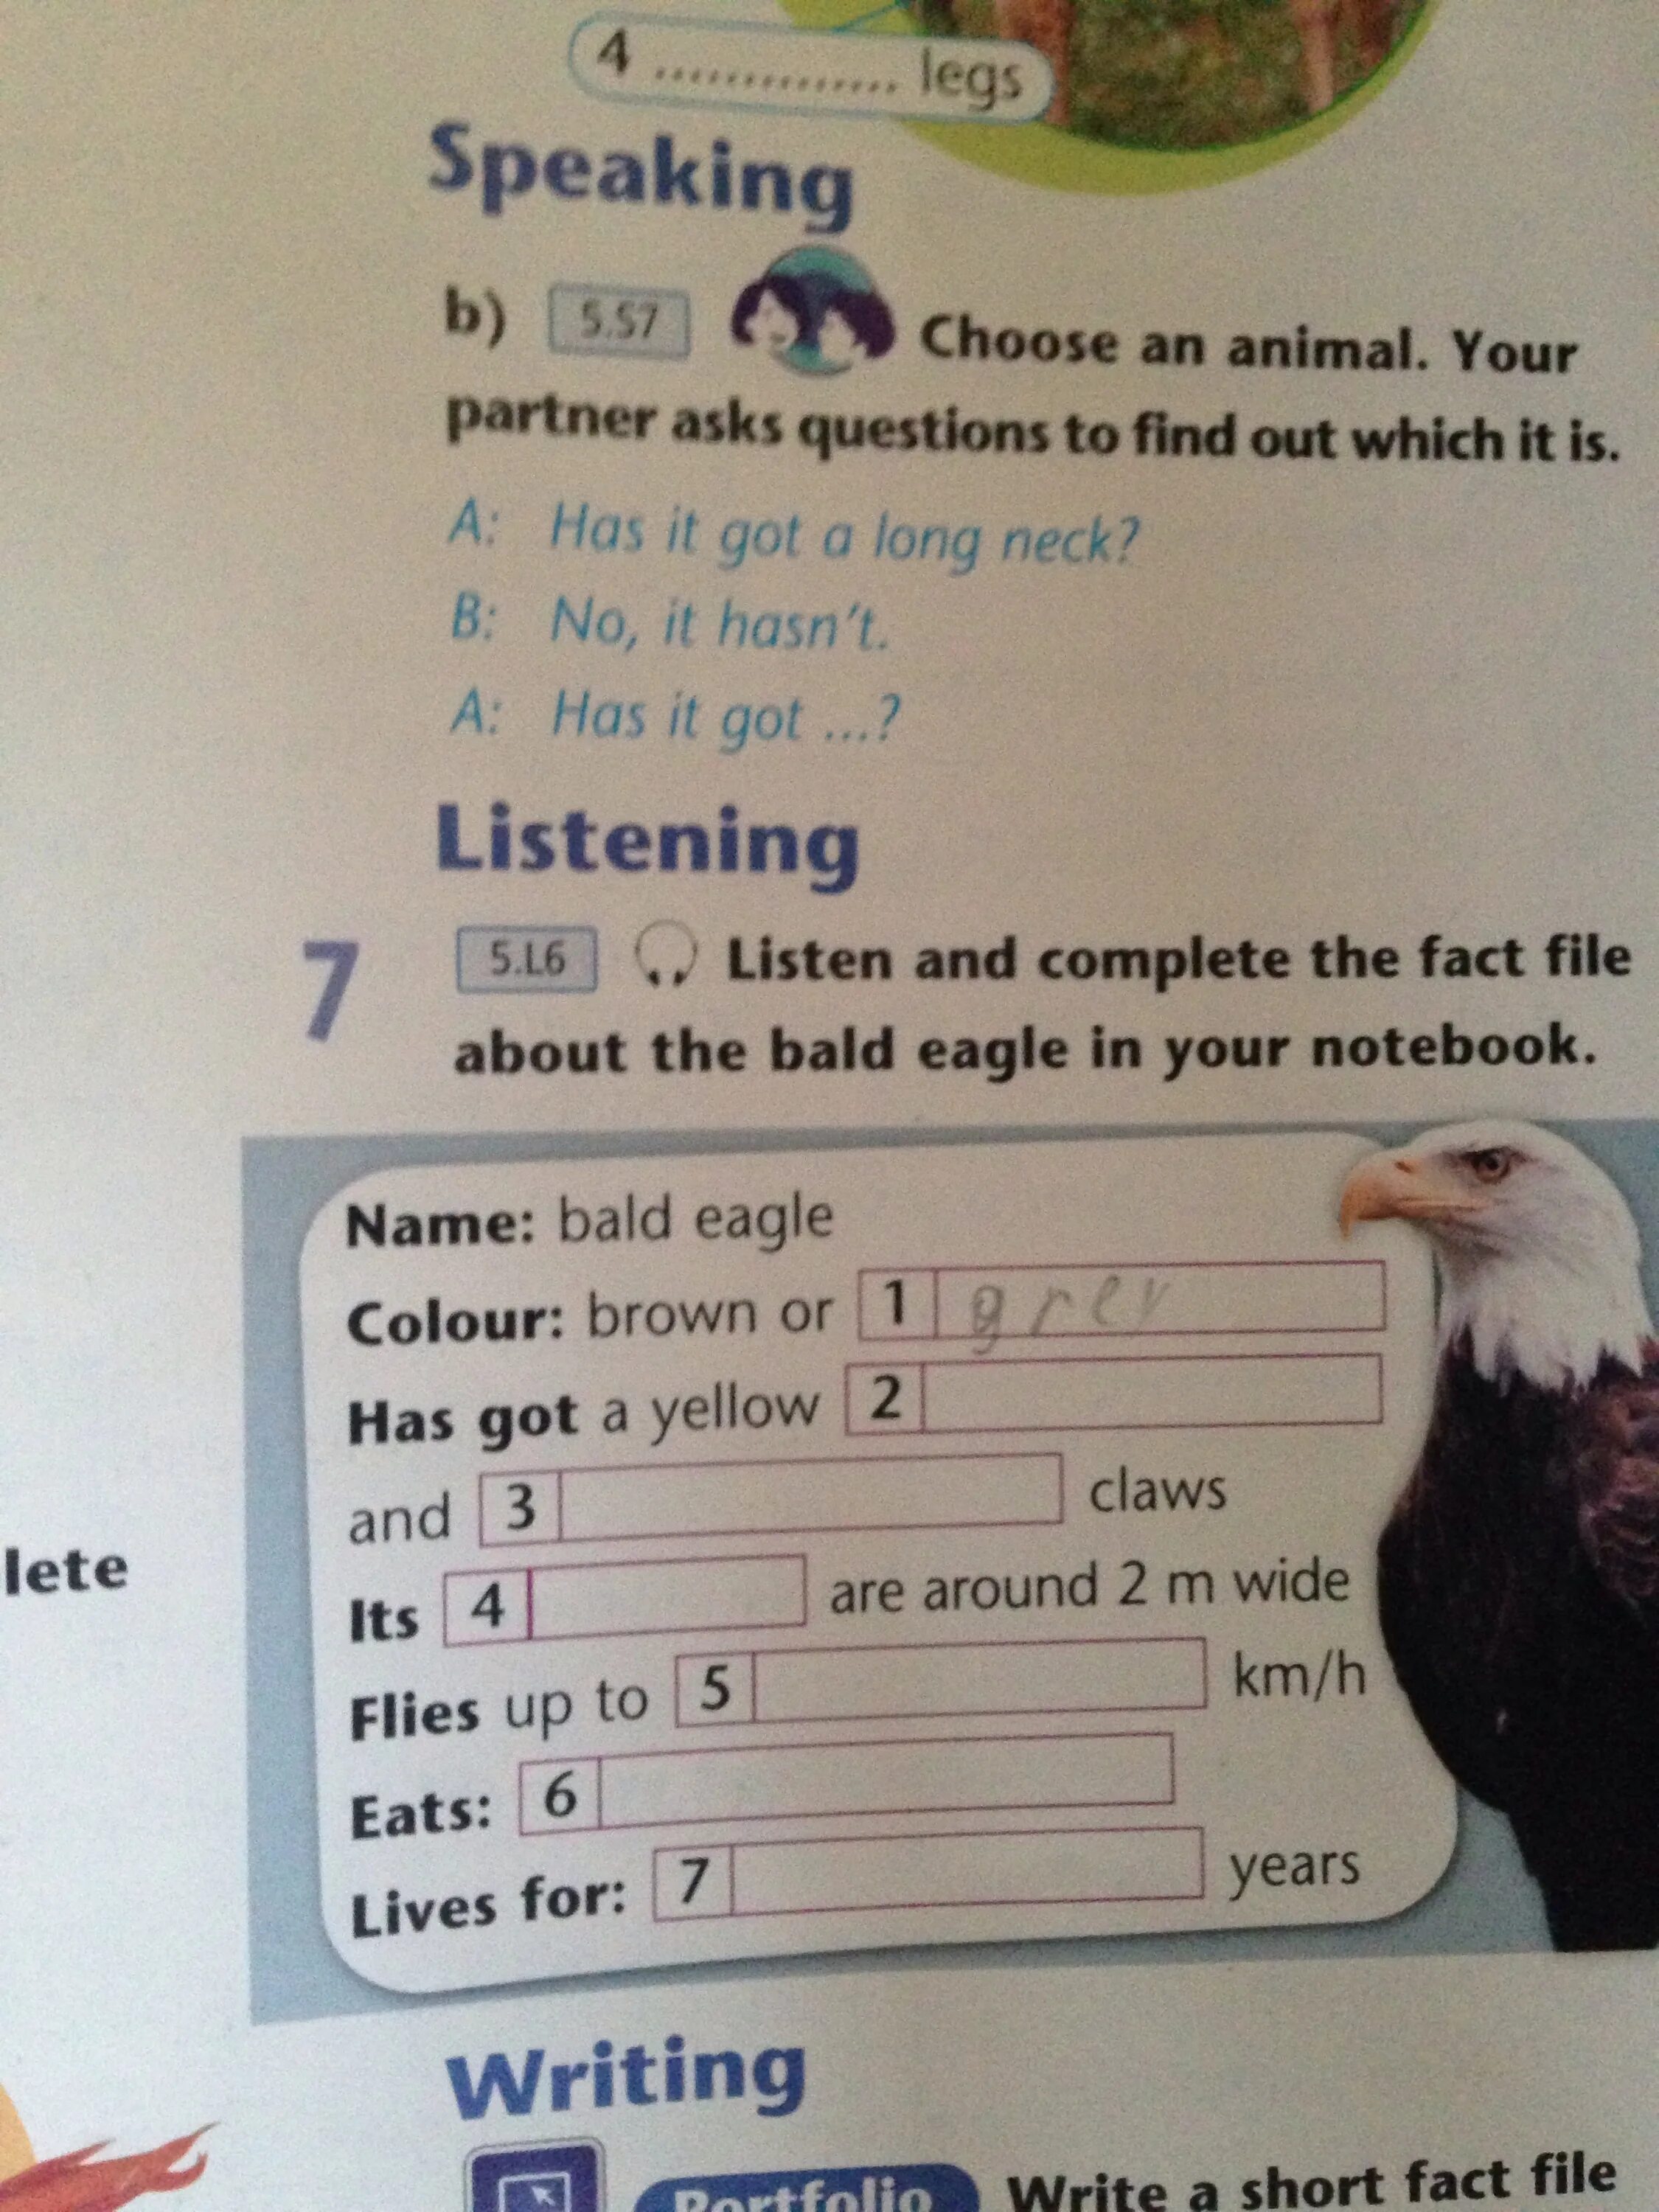 4 ............... legs
Speaking
b) 5.S7 Choose an animal. Your
partner asks questions to find out which it is.
A: Has it got a long neck?
B: No, it hasn't.
A: Has it got ...?
Listening
7 5.L6 Listen and complete the fact file
about the bald eagle in your notebook.
Name: bald eagle
Colour: brown or 1 grey
Has got a yellow 2
and 3 claws
lete
Its 4 are around 2 m wide
Flies up to 5 km/h
Eats: 6
Lives for: 7 years
Writing
Portfolio Write a short fact file